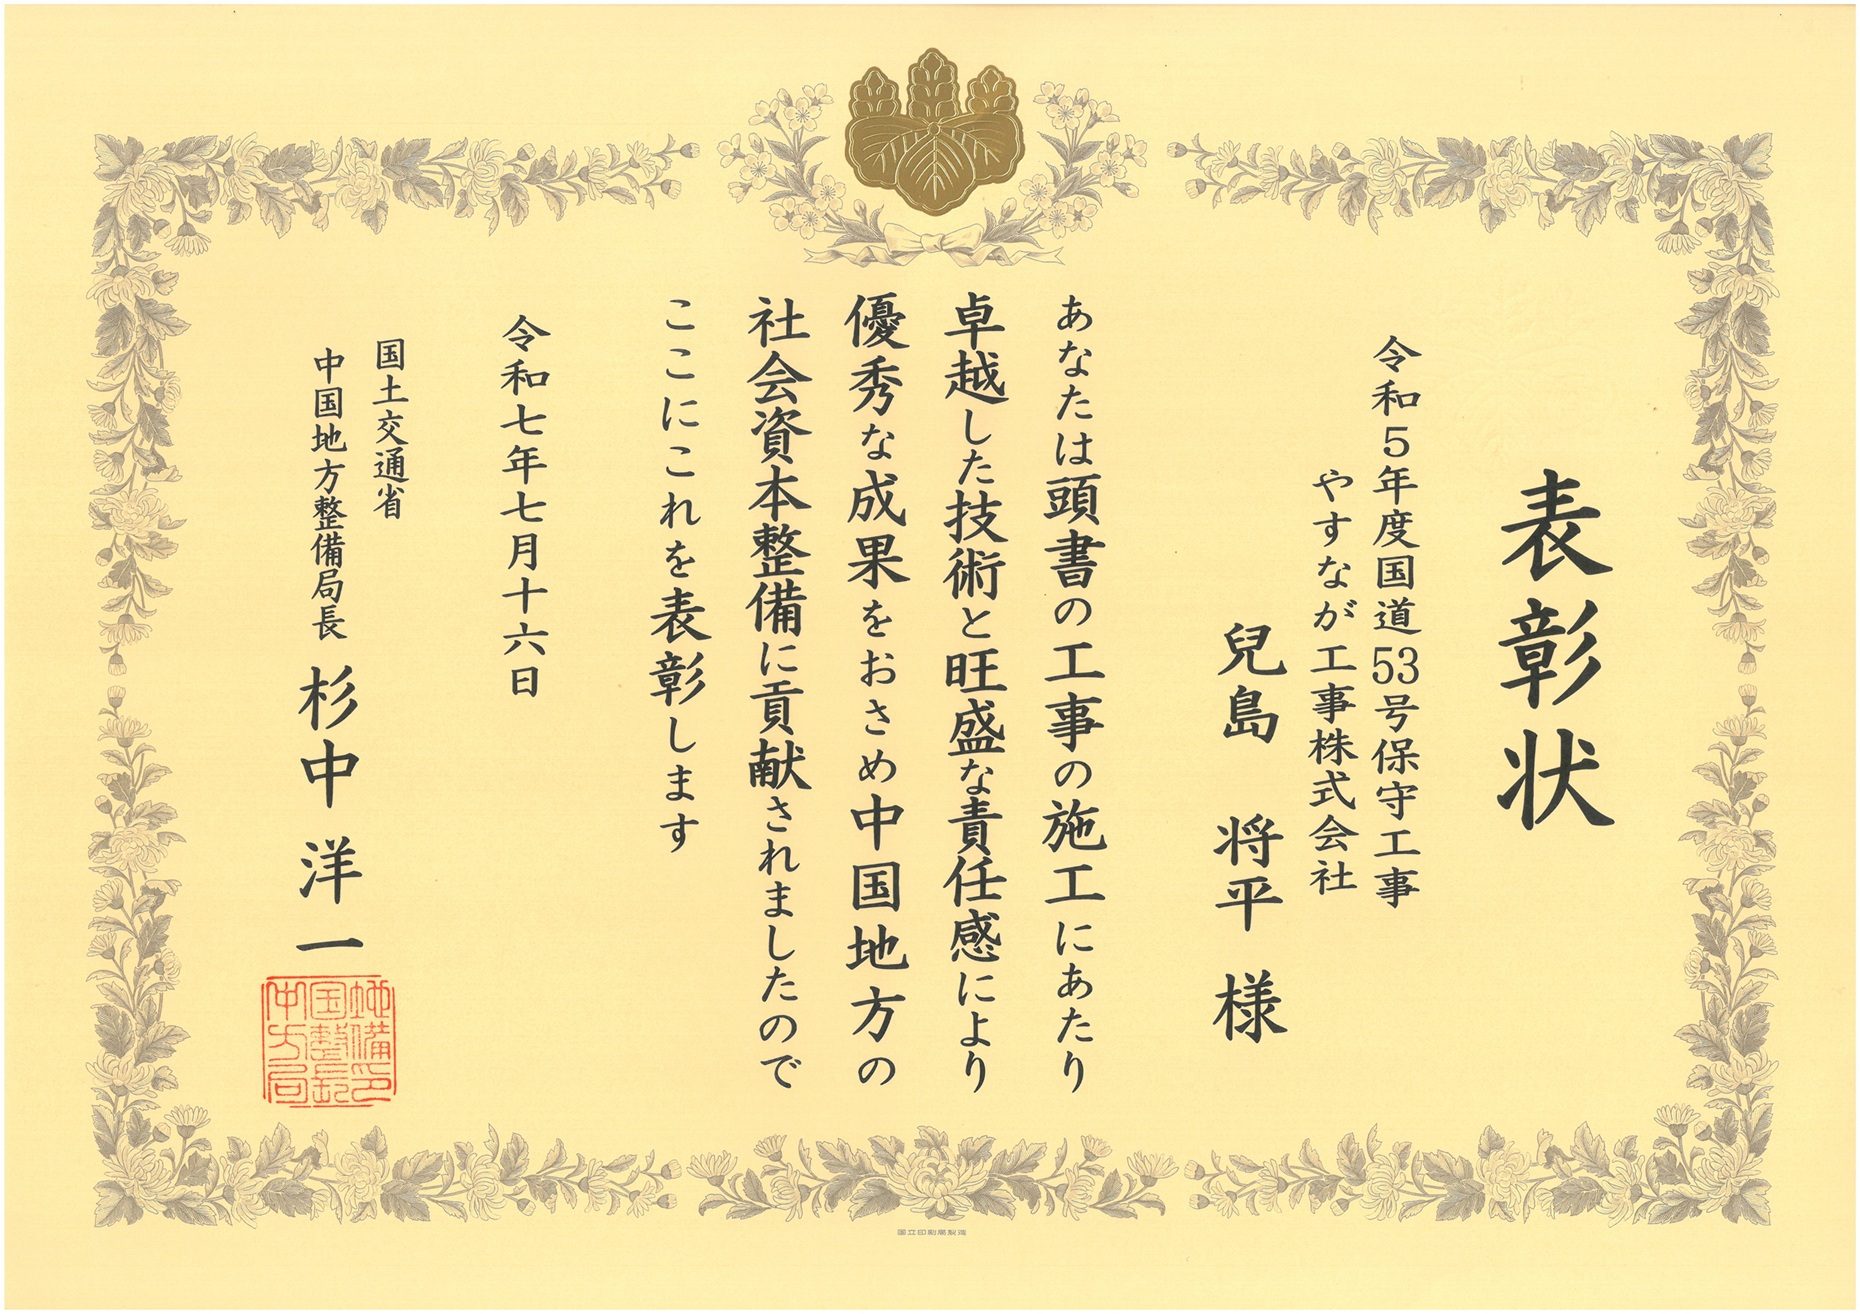 表彰状
令和５年度国道53号保守工事
やすなが工事株式会社
兒島　将平　様
あなたは頭書の工事の施工にあたり
卓越した技術と旺盛な責任感により
優秀な成果をおさめ中国地方の
社会資本整備に貢献されましたので
ここにこれを表彰します
令和七年七月十六日
国土交通省
中国地方整備局長　杉中　洋一
地備印
国整長
中方局
国立印刷局製造